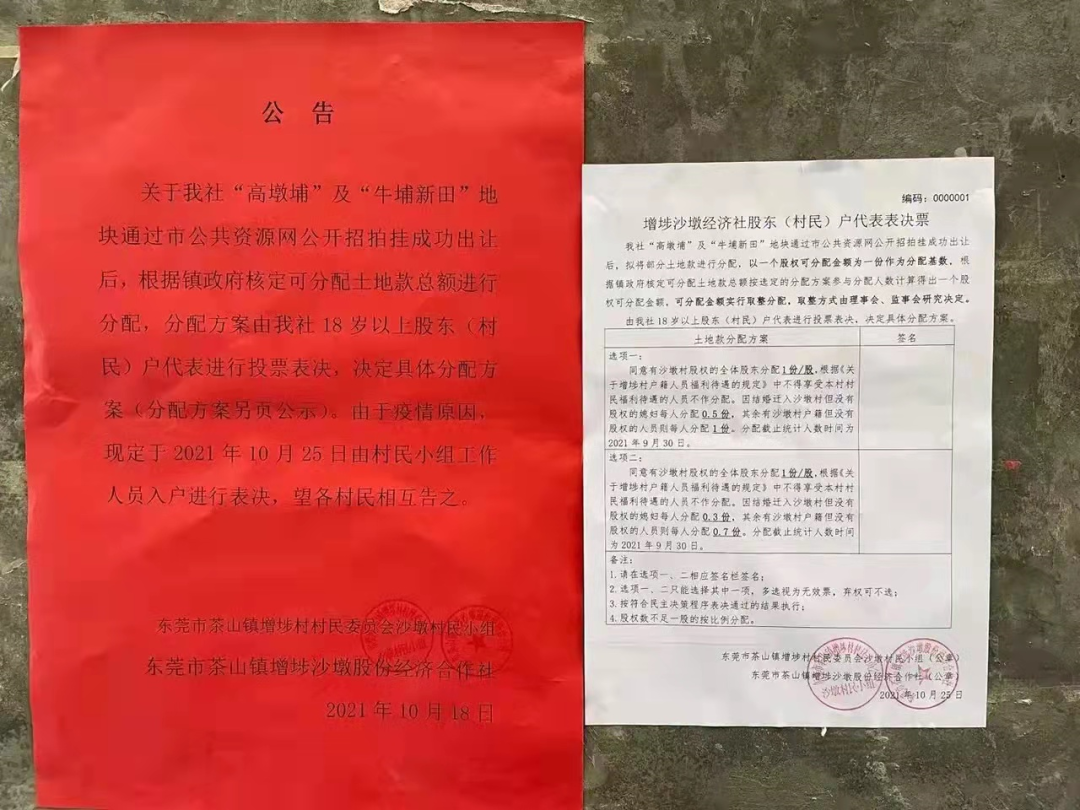 公 告
关于我社“高墩埔”及“牛埔新田”地
块通过市公共资源网公开招拍挂成功出让
后，根据镇政府核定可分配土地款总额进行
分配，分配方案由我社 18 岁以上股东（村
民）户代表进行投票表决，决定具体分配方
案（分配方案另页公示）。由于疫情原因，
现定于 2021 年 10 月 25 日由村民小组工作
人员入户进行表决，望各村民相互告之。
东莞市茶山镇增埗村村民委员会沙墩村民小组
东莞市茶山镇增埗沙墩股份经济合作社
2021 年 10 月 18 日
编码：0000001
增埗沙墩经济社股东（村民）户代表表决票
我社“高墩埔”及“牛埔新田”地块通过市公共资源网公开招拍挂成功出让
后，拟将部分土地款进行分配，以一个股权可分配金额为一份作为分配基数，根
据镇政府核定可分配土地款总额按选定的分配方案参与分配人数计算得出一个股
权可分配金额，可分配金额实行取整分配，取整方式由理事会、监事会研究决定。
由我社 18 岁以上股东（村民）户代表进行投票表决，决定具体分配方案。
土地款分配方案 签名
选项一：
同意有沙墩村股权的全体股东分配 1份/股，根据《关
于增埗村户籍人员福利待遇的规定》中不得享受本村村
民福利待遇的人员不作分配。因结婚迁入沙墩村但没有
股权的媳妇每人分配 0.5 份，其余有沙墩村户籍但没有
股权的人员则每人分配 1 份。分配截止统计人数时间为
2021 年 9 月 30 日。
选项二：
同意有沙墩村股权的全体股东分配 1份/股，根据《关
于增埗村户籍人员福利待遇的规定》中不得享受本村村
民福利待遇的人员不作分配。因结婚迁入沙墩村但没有
股权的媳妇每人分配 0.3 份，其余有沙墩村户籍但没有
股权的人员则每人分配 0.7 份。分配截止统计人数时间
为 2021 年 9 月 30 日。
备注：
1.请在选项一、二相应签名栏签名；
2.选项一、二只能选择其中一项，多选视为无效票，弃权可不选；
3.按符合民主决策程序表决通过的结果执行；
4.股权数不足一股的按比例分配。
东莞市茶山镇增埗村村民委员会沙墩村民小组（公章）
东莞市茶山镇增埗沙墩股份经济合作社（公章）
2021 年 10 月 25 日
沙墩村民小组